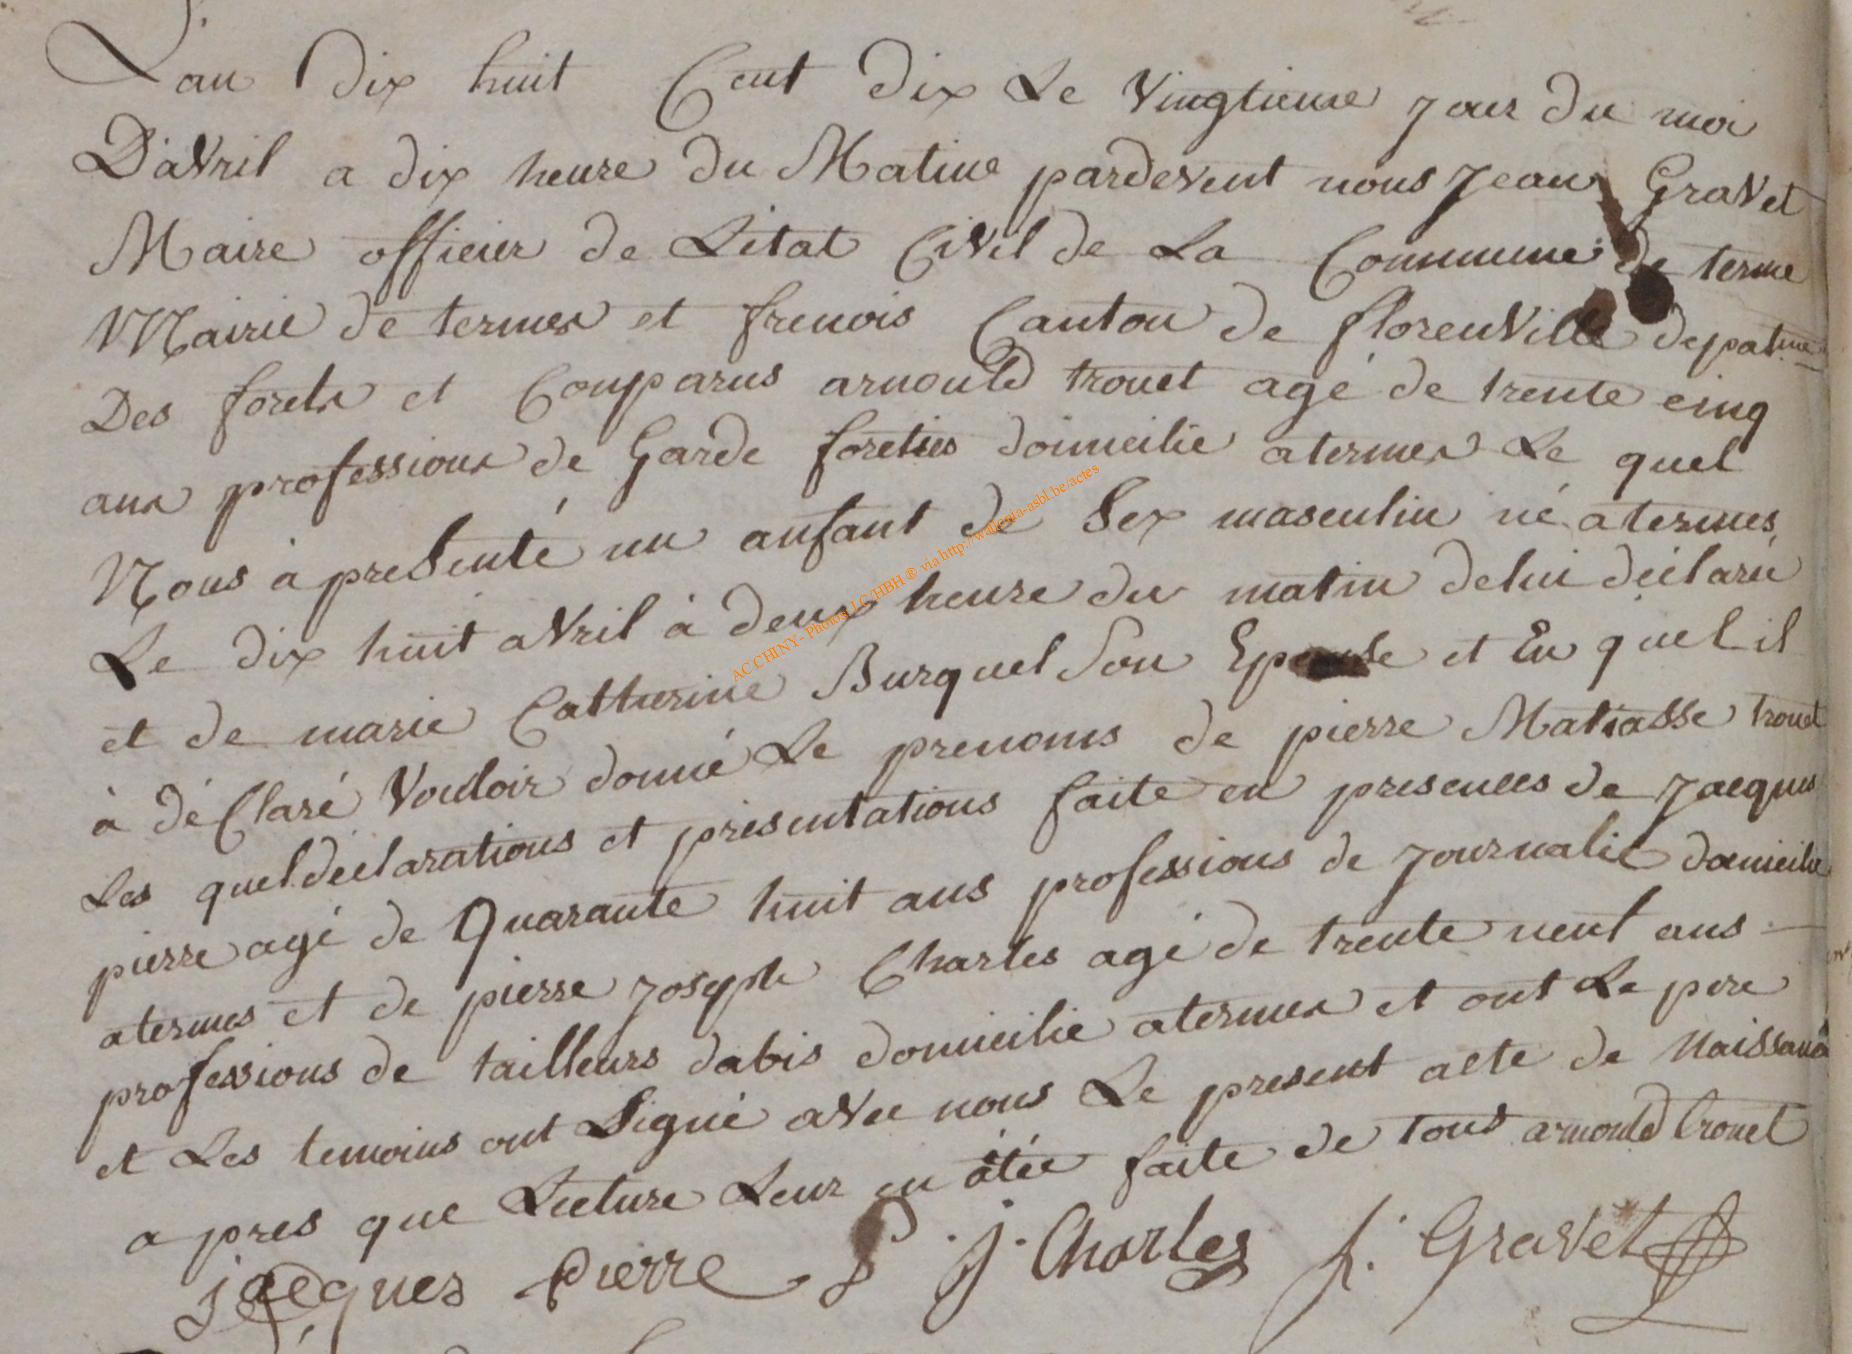 L'an dix huit Cent dix Le Vingtieme jour du moi
D'avril a dix heure du Matine pardevent nous Jean Gravet
Maire officier de L'etat Civil de La Commune de terme
Mairie de termes et frenois Canton de florenville depatme
Des forets et Comparus arnould trouet agé de trente cinq
ans professions de Garde foreties domicilie a termes Le quel
Nous à presenté un anfant de Sex masculin né a termes
Le dix huit avril à deux heure du matin de lui déclaré
et de marie Catherine Burquel Son Epouse et En quel il
à déClaré Vouloir donné Le prenoms de pierre Matiasse trouet
Les quel déclarations et présentations faite en presences de Jacques
pierre agé de Quarante huit ans professions de Journalié domicilie
a termes et de pierre Joseph Charles agé de trente neuf ans
professions de tailleurs dabis domicilié a termes et ont Le pere
et Les temoins ont Signé avec nous Le present acte de Naissance
a pres que Lecture Leur en ètée faite de tous arnould trouet
jacques pierre P. j. Charles j. Gravet
ACCHINY - Photos LC/HBH ® via http://wallonia-asbl.be/actes